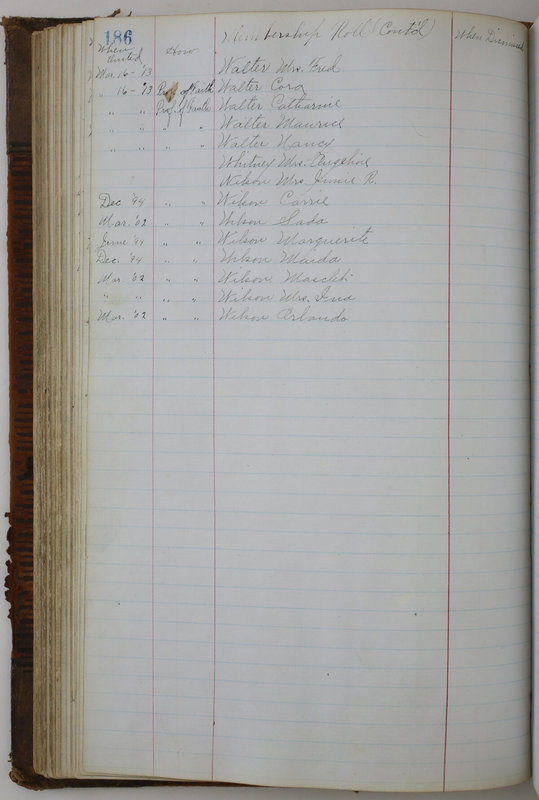 186
When United How Membership Roll (Cont'd) When Dismissed
Mar 16 - '93 Walter Mrs. Fred
" 16 - '93 Prof. of Faith Walter Cora
" " Prof. of Faith Walter Catharine
" " " " Walter Maurice
" " " " Walter Nancy
Whitney Mrs. Angeline
Wilson Mrs. Jennie R.
Dec '94 " " Wilson Carrie
Mar. '02 " " Wilson Sada
June '94 " " Wilson Marguerite
Dec. '94 " " Wilson Maida
Mar. '02 " " Wilson
" " " " Wilson Mrs. Ina
Mar. '02 " " Wilson Orlando